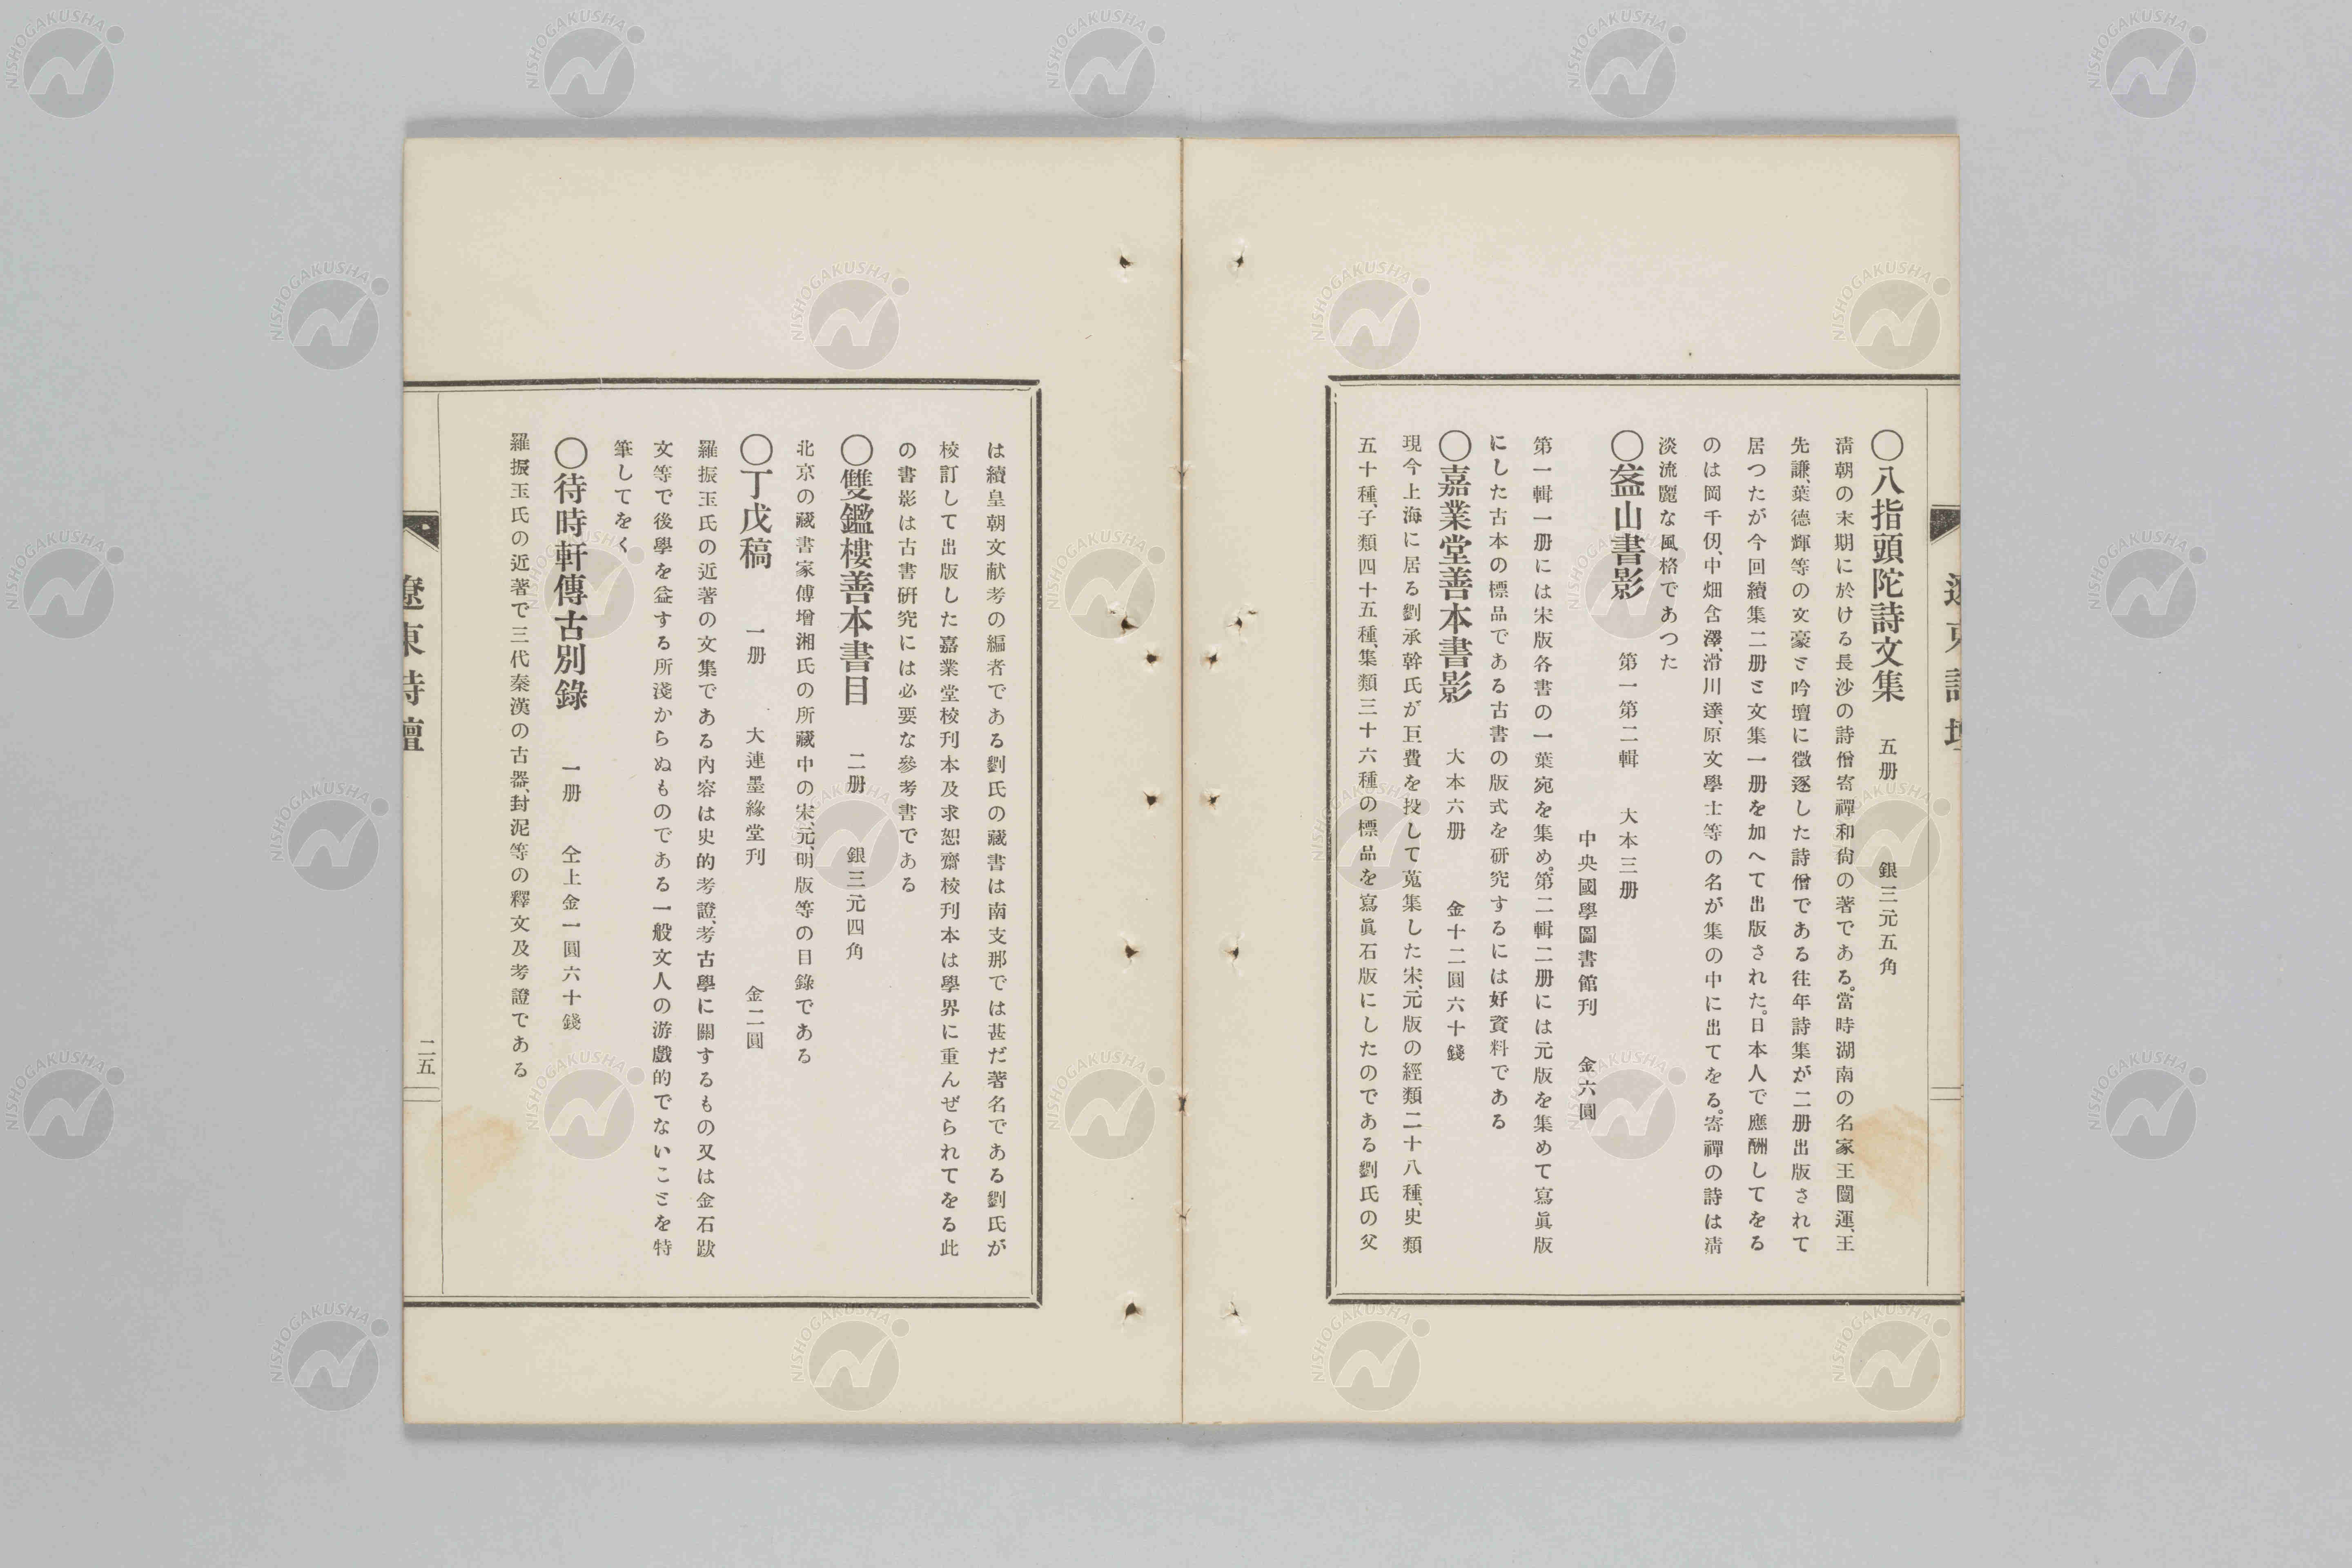 ○八指頭陀詩文集　五册　銀三元五角
清朝の末期に於ける長沙の詩僧寄禪和尙の著である。當時湖南の名家王闓運、王
先謙、葉德輝等の文豪ミ吟壇に徵逐した詩僧である往年詩集が二册出版されて
居つたが今回續集二册ミ文集一册を加へて出版された。日本人で應酬してをる
のは岡千仞、中畑含澤、滑川達、原文學士等の名が集の中に出てをる。寄禪の詩は淸
淡流麗な風格であつた
○盋山書影　第一第二輯　大本三册
中央國學圖書館刊　金六圓
第一輯一册には宋版各書の一葉宛を集め。第二輯二册には元版を集めて寫眞版
にした古本の標品である古書の版式を硏究するには好資料である
○嘉業堂善本書影　大本六册　金十二圓六十錢
現今上海に居る劉承幹氏が巨費を投して蒐集した宋、元版の經類二十八種、史類
五十種、子類四十五種、集類三十六種の標品を寫眞石版にしたのである劉氏の父
は續皇朝文献考の編者である劉氏の藏書は南支那では甚だ著名である劉氏が
校訂して出版した嘉業堂校刋本及求恕齋校刋本は學界に重んぜられてをる此
の書影は古書硏究には必要な參考書である
○雙鑑樓善本書目　二册　銀三元四角
北京の藏書家傅增湘氏の所藏中の宋、元、明版等の目錄である
○丁戊稿　一册　大連墨緣堂刋　金二圓
羅振玉氏の近著の文集である內容は史的考證、考古學に關するもの又は金石跋
文等で後學を益する所淺からぬものである一般文人の游戲的でないこミを特
筆してをく
○待時軒傳古別錄　一册　仝上金一圓六十錢
羅振玉氏の近著で三代秦漢の古器、封泥等の釋文及考證である
遼東詩壇
二五
NISHOGAKUSHA